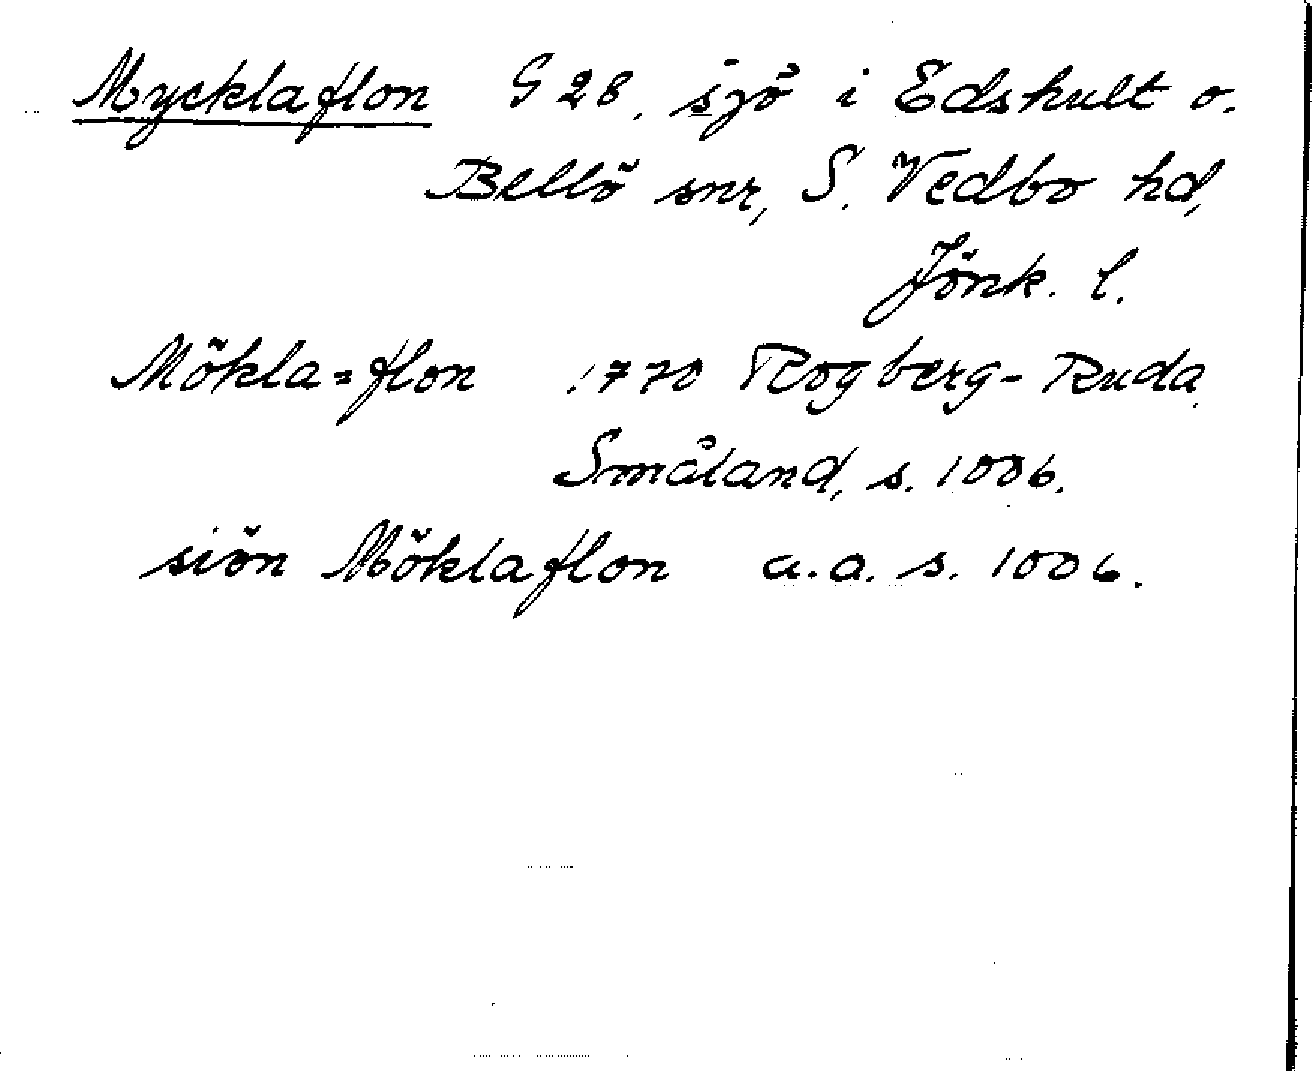 Mycklaflon G 28. sjö i Edshult o.
Bellö snr, S. Vedbo hd,
Jönk. l.
Mökla=flon 1770 Rogberg-Ruda
Småland, s. 1006.
siön Möklaflon a.a. s. 1006.